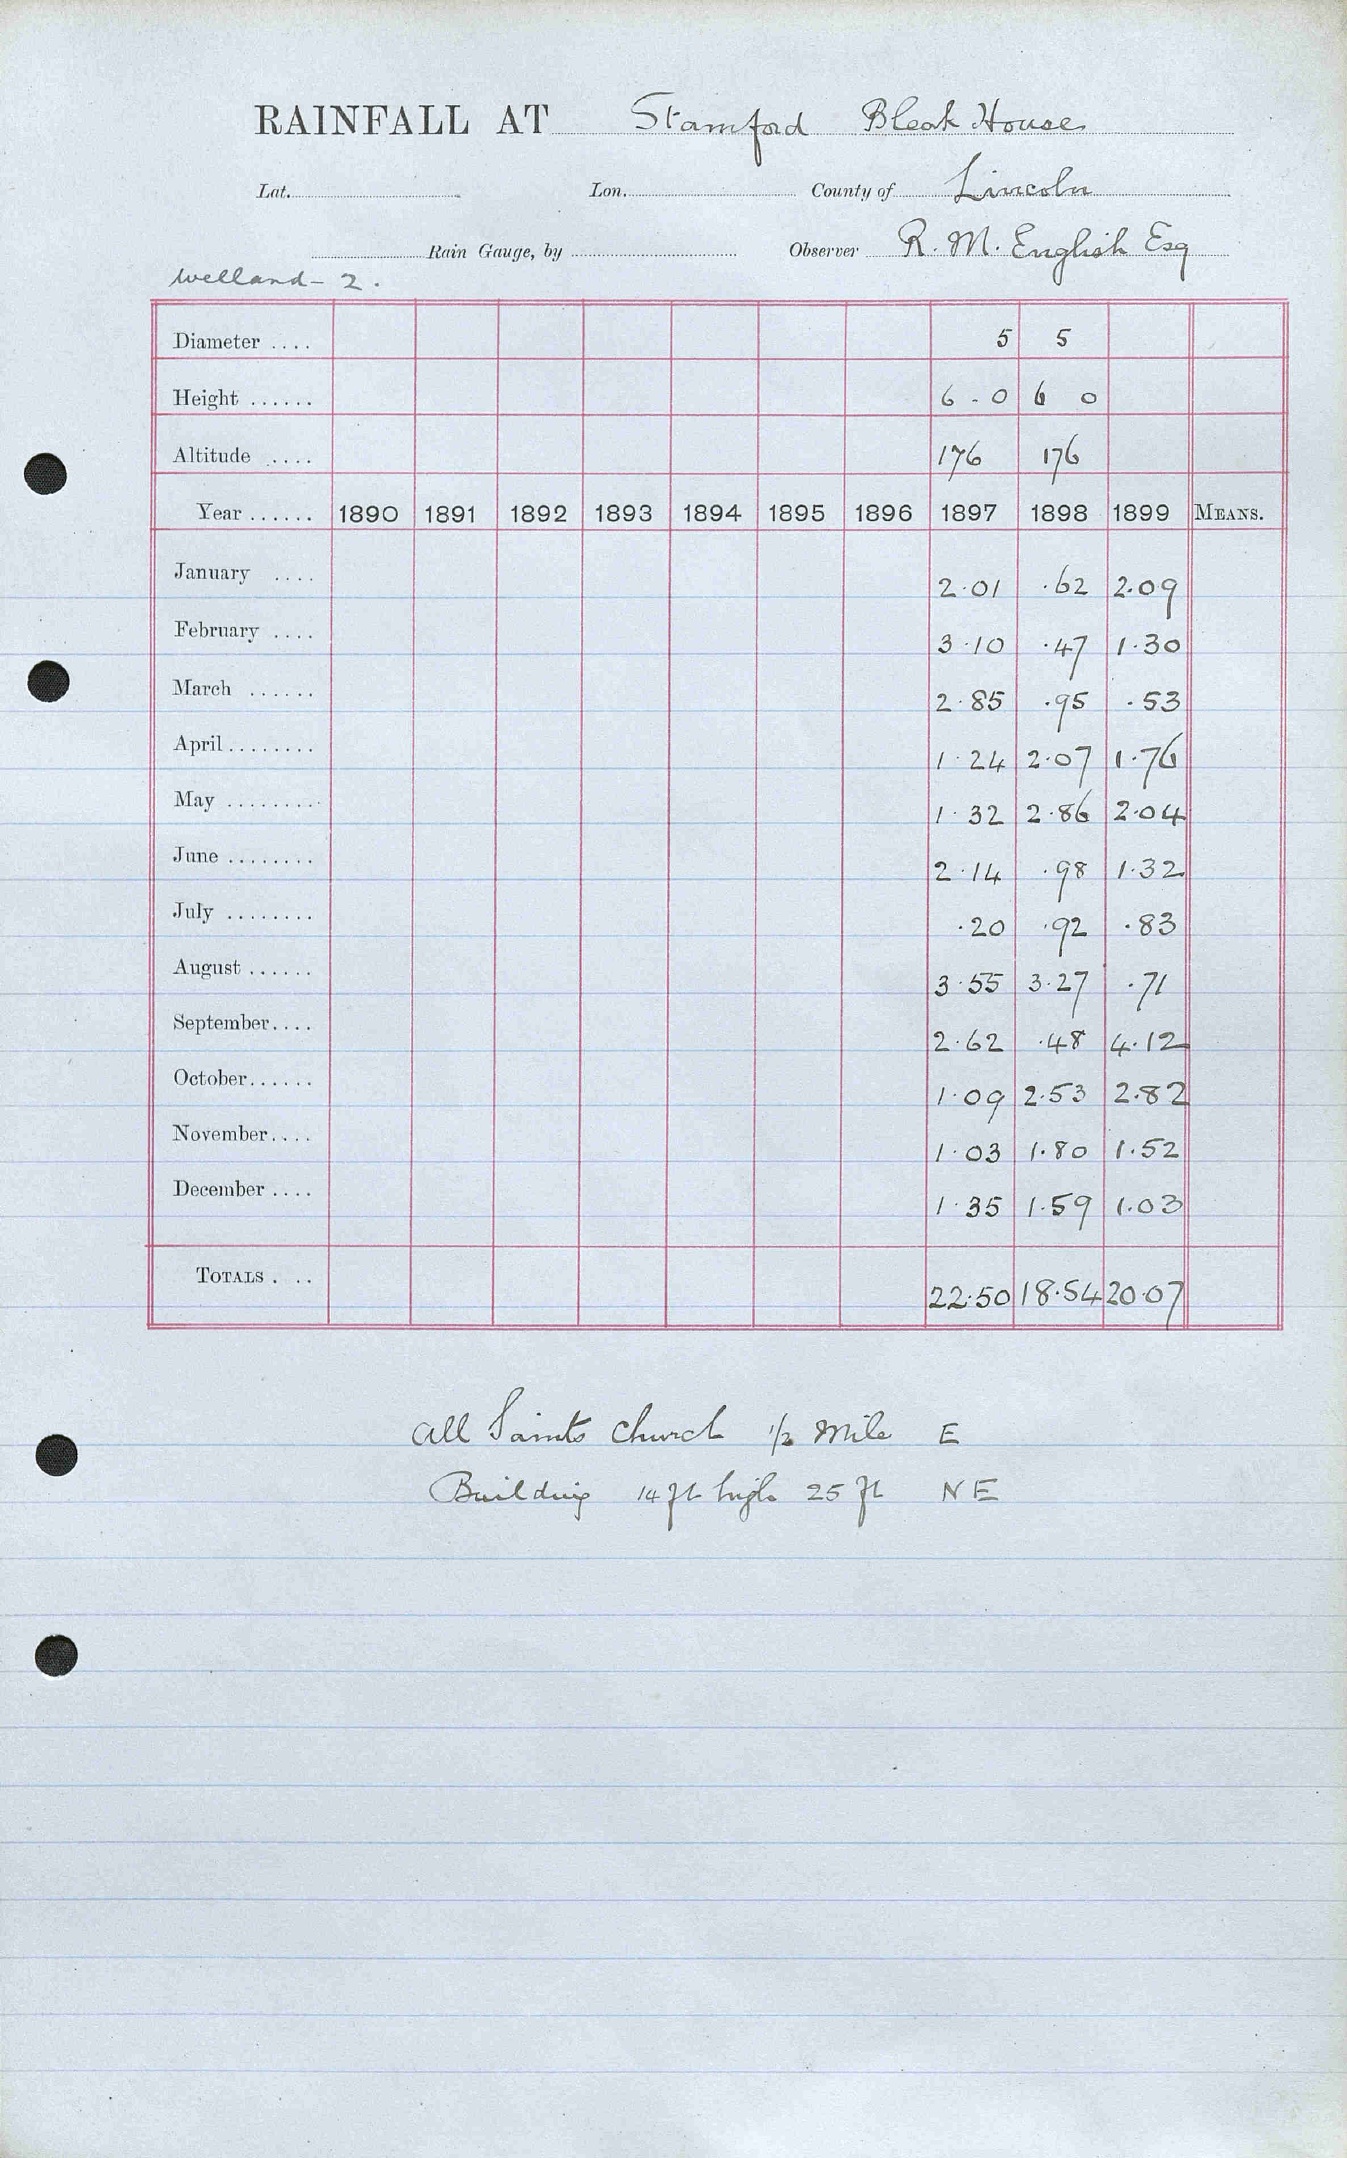 RAINFALL AT Stamford Bleak House
Lat. Lon. County of Lincoln
Rain Gauge, by Observer R. M. English Esq
Welland - 2.
Diameter .... 5 5
Height ...... 6 - 0 6 0
Altitude .... 176 176
Year ...... 1890 1891 1892 1893 1894 1895 1896 1897 1898 1899 MEANS.
January .... 2.01 .62 2.09
February .... 3.10 .47 1.30
March ...... 2.85 .95 .53
April ........ 1.24 2.07 1.76
May ........ 1.32 2.86 2.04
June ........ 2.14 .98 1.32
July ........ .20 .92 .83
August ...... 3.55 3.27 .71
September.... 2.62 .48 4.12
October...... 1.09 2.53 2.82
November.... 1.03 1.80 1.52
December .... 1.35 1.59 1.03
TOTALS . .. 22.50 18.54 20.07
All Saints Church 1/2 Mile E
Building 14 ft high 25 ft NE